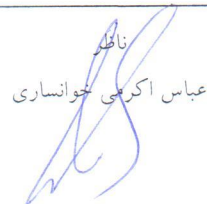 ناظر
عباس اکرمی خوانساری